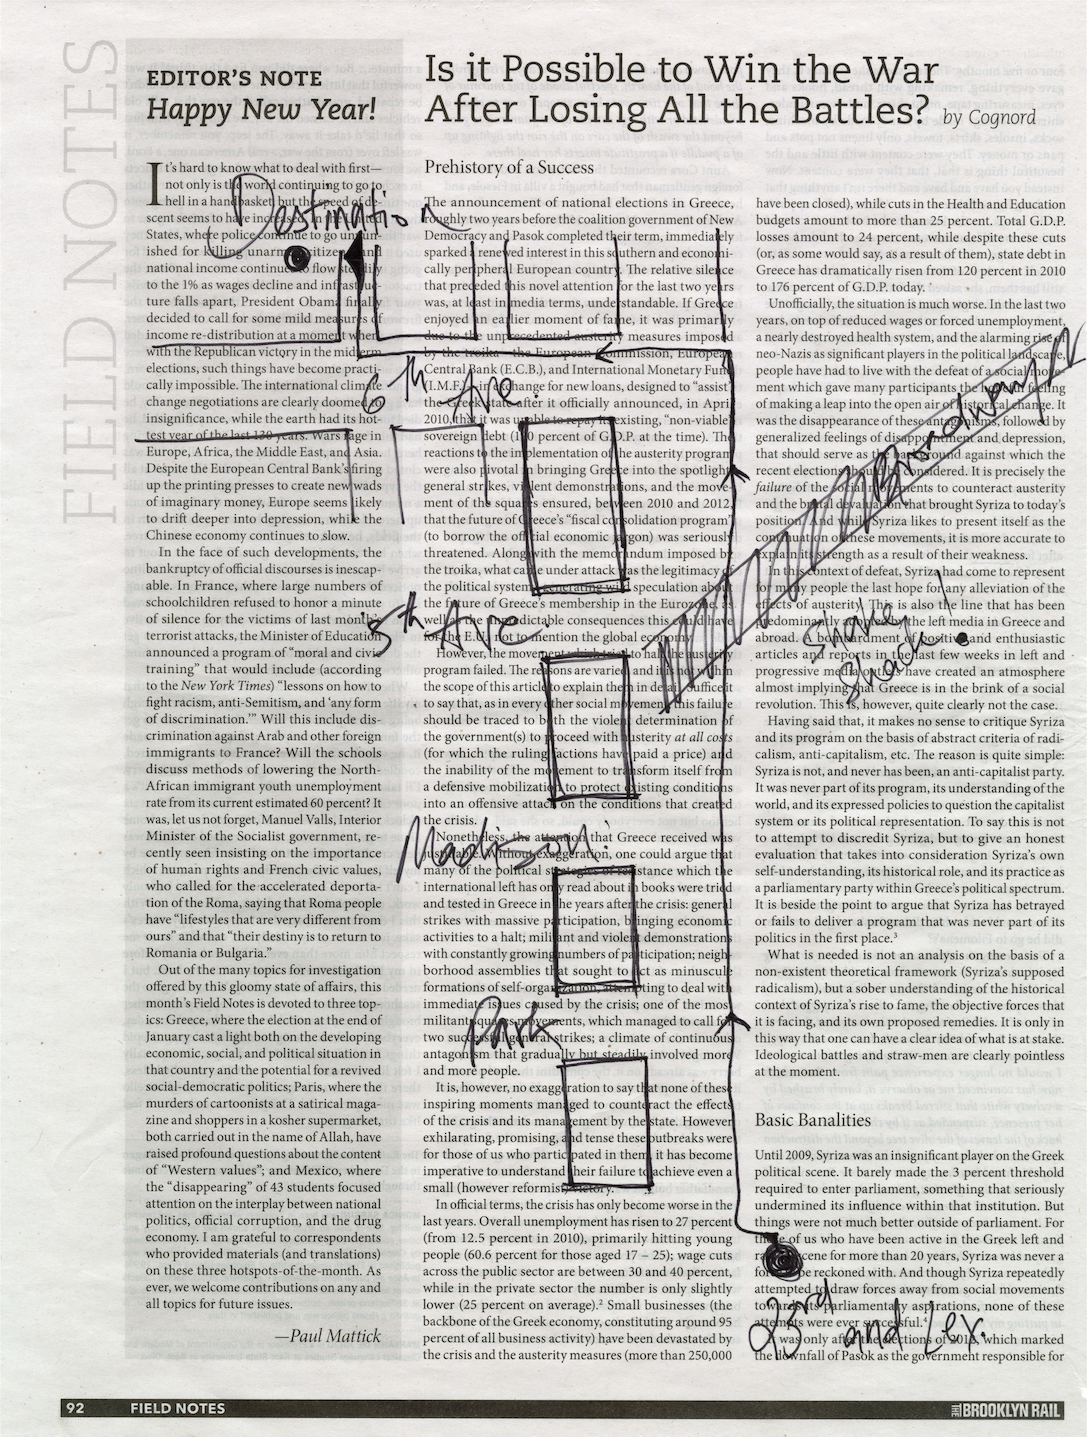 FIELD NOTES
EDITOR'S NOTE
Happy New Year!
It's hard to know what to deal with first—
not only is the world continuing to go to
hell in a hand basket but the speed of de-
scent seems to have increased. In the United
States, where police continue to go unpun-
ished for killing unarmed citizens and
national income continues to flow steadily
to the 1% as wages decline and infrastruc-
ture falls apart, President Obama finally
decided to call for some mild measures of
income re-distribution at a moment when,
with the Republican victory in the midterm
elections, such things have become practi-
cally impossible. The international climate
change negotiations are clearly doomed to
insignificance, while the earth had its hot-
test year of the last 130 years. Wars rage in
Europe, Africa, the Middle East, and Asia.
Despite the European Central Bank's firing
up the printing presses to create new wads
of imaginary money, Europe seems likely
to drift deeper into depression, while the
Chinese economy continues to slow.
In the face of such developments, the
bankruptcy of official discourses is inescap-
able. In France, where large numbers of
schoolchildren refused to honor a minute
of silence for the victims of last month's
terrorist attacks, the Minister of Education
announced a program of "moral and civic
training" that would include (according
to the New York Times) "lessons on how to
fight racism, anti-Semitism, and 'any form
of discrimination.'" Will this include dis-
crimination against Arab and other foreign
immigrants to France? Will the schools
discuss methods of lowering the North-
African immigrant youth unemployment
rate from its current estimated 60 percent? It
was, let us not forget, Manuel Valls, Interior
Minister of the Socialist government, re-
cently seen insisting on the importance
of human rights and French civic values,
who called for the accelerated deporta-
tion of the Roma, saying that Roma people
have "lifestyles that are very different from
ours" and that "their destiny is to return to
Romania or Bulgaria."
Out of the many topics for investigation
offered by this gloomy state of affairs, this
month's Field Notes is devoted to three top-
ics: Greece, where the election at the end of
January cast a light both on the developing
economic, social, and political situation in
that country and the potential for a revived
social-democratic politics; Paris, where the
murders of cartoonists at a satirical maga-
zine and shoppers in a kosher supermarket,
both carried out in the name of Allah, have
raised profound questions about the content
of "Western values"; and Mexico, where
the "disappearing" of 43 students focused
attention on the interplay between national
politics, official corruption, and the drug
economy. I am grateful to correspondents
who provided materials (and translations)
on these three hotspots-of-the-month. As
ever, we welcome contributions on any and
all topics for future issues.
—Paul Mattick
Is it Possible to Win the War
After Losing All the Battles? by Cognord
Prehistory of a Success
The announcement of national elections in Greece,
roughly two years before the coalition government of New
Democracy and Pasok completed their term, immediately
sparked renewed interest in this southern and economi-
cally peripheral European country. The relative silence
that preceded this novel attention for the last two years
was, at least in media terms, understandable. If Greece
enjoyed an earlier moment of fame, it was primarily
due to the unprecedented austerity measures imposed
by the troika—the European Commission, European
Central Bank (E.C.B.), and International Monetary Fund
(I.M.F.)—in exchange for new loans, designed to "assist"
the Greek state after it officially announced, in April
2010, that it was unable to repay its existing, "non-viable"
sovereign debt (120 percent of G.D.P. at the time). The
reactions to the implementation of the austerity program
were also pivotal in bringing Greece into the spotlight:
general strikes, violent demonstrations, and the move-
ment of the squares ensured, between 2010 and 2012,
that the future of Greece's "fiscal consolidation program"
(to borrow the official economic jargon) was seriously
threatened. Along with the memorandum imposed by
the troika, what came under attack was the legitimacy of
the political system, generating wild speculation about
the future of Greece's membership in the Eurozone, as
well as the predictable consequences this would have
for the E.U., not to mention the global economy.
However, the movement which tried to halt the austerity
program failed. The reasons are varied and it is not within
the scope of this article to explain them in detail. Suffice it
to say that, as in every other social movement, this failure
should be traced to both the violent determination of
the government(s) to proceed with austerity at all costs
(for which the ruling factions have paid a price) and
the inability of the movement to transform itself from
a defensive mobilization to protect existing conditions
into an offensive attack on the conditions that created
the crisis.
Nonetheless, the attention that Greece received was
justifiable. Without exaggeration, one could argue that
many of the political strategies of resistance which the
international left has only read about in books were tried
and tested in Greece in the years after the crisis: general
strikes with massive participation, bringing economic
activities to a halt; militant and violent demonstrations
with constantly growing numbers of participation; neigh-
borhood assemblies that sought to act as minuscule
formations of self-organization, attempting to deal with
immediate issues caused by the crisis; one of the most
militant squares movements, which managed to call for
two successful general strikes; a climate of continuous
antagonism that gradually but steadily involved more
and more people.
It is, however, no exaggeration to say that none of these
inspiring moments managed to counteract the effects
of the crisis and its management by the state. However
exhilarating, promising, and tense these outbreaks were
for those of us who participated in them, it has become
imperative to understand their failure to achieve even a
small (however reformist) victory.
In official terms, the crisis has only become worse in the
last years. Overall unemployment has risen to 27 percent
(from 12.5 percent in 2010), primarily hitting young
people (60.6 percent for those aged 17 – 25); wage cuts
across the public sector are between 30 and 40 percent,
while in the private sector the number is only slightly
lower (25 percent on average).² Small businesses (the
backbone of the Greek economy, constituting around 95
percent of all business activity) have been devastated by
the crisis and the austerity measures (more than 250,000
have been closed), while cuts in the Health and Education
budgets amount to more than 25 percent. Total G.D.P.
losses amount to 24 percent, while despite these cuts
(or, as some would say, as a result of them), state debt in
Greece has dramatically risen from 120 percent in 2010
to 176 percent of G.D.P. today.
Unofficially, the situation is much worse. In the last two
years, on top of reduced wages or forced unemployment,
a nearly destroyed health system, and the alarming rise of
neo-Nazis as significant players in the political landscape,
people have had to live with the defeat of a social move-
ment which gave many participants the feeling
of making a leap into the open air of historical change. It
was the disappearance of these antagonisms, followed by
generalized feelings of disappointment and depression,
that should serve as the background against which the
recent elections should be considered. It is precisely the
failure of the social movements to counteract austerity
and the brutal devaluation that brought Syriza to today's
position. And while Syriza likes to present itself as the
continuation of these movements, it is more accurate to
explain its strength as a result of their weakness.
In this context of defeat, Syriza had come to represent
for many people the last hope for any alleviation of the
effects of austerity. This is also the line that has been
predominantly adopted by the left media in Greece and
abroad. A bombardment of positive and enthusiastic
articles and reports in the last few weeks in left and
progressive media have created an atmosphere
almost implying that Greece is in the brink of a social
revolution. This is, however, quite clearly not the case.
Having said that, it makes no sense to critique Syriza
and its program on the basis of abstract criteria of radi-
calism, anti-capitalism, etc. The reason is quite simple:
Syriza is not, and never has been, an anti-capitalist party.
It was never part of its program, its understanding of the
world, and its expressed policies to question the capitalist
system or its political representation. To say this is not
to attempt to discredit Syriza, but to give an honest
evaluation that takes into consideration Syriza's own
self-understanding, its historical role, and its practice as
a parliamentary party within Greece's political spectrum.
It is beside the point to argue that Syriza has betrayed
or fails to deliver a program that was never part of its
politics in the first place.³
What is needed is not an analysis on the basis of a
non-existent theoretical framework (Syriza's supposed
radicalism), but a sober understanding of the historical
context of Syriza's rise to fame, the objective forces that
it is facing, and its own proposed remedies. It is only in
this way that one can have a clear idea of what is at stake.
Ideological battles and straw-men are clearly pointless
at the moment.
Basic Banalities
Until 2009, Syriza was an insignificant player on the Greek
political scene. It barely made the 3 percent threshold
required to enter parliament, something that seriously
undermined its influence within that institution. But
things were not much better outside of parliament. For
those of us who have been active in the Greek left and
scene for more than 20 years, Syriza was never a
force to be reckoned with. And though Syriza repeatedly
attempted to draw forces away from social movements
towards its parliamentary aspirations, none of these
attempts were ever successful.⁴
It was only after the elections of 2012, which marked
the downfall of Pasok as the government responsible for
Destination
6th Ave.
5th Ave.
Madison
Park
Broadway
Shake
Shack!
23rd
and Lex.
92 FIELD NOTES
THE BROOKLYN RAIL